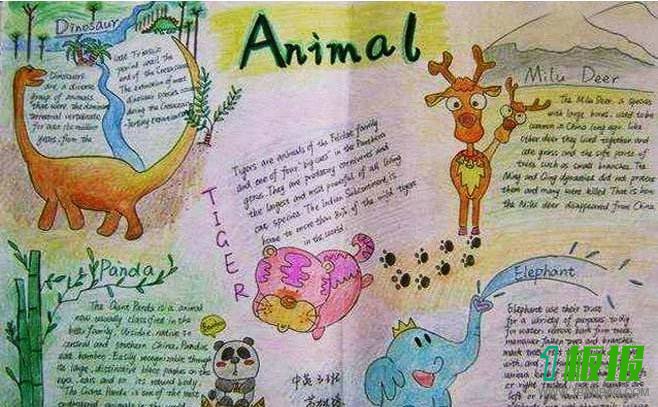 Animal
Dinosaur
Dinosaurs
are a diverse
group of animals
that were the dominant
terrestrial vertebrates
for over 160 million
years, from the
late Triassic
period until the
end of the Cretaceous
The extinction of most
dinosaur species occurred
during the Cretaceous
Tertiary extinction
TIGER
Tigers are animals of the Felidae family
and one of four "big cats" in the Panthera
genus. They are predatory carnivores and
the largest and most powerful of all living
cat species. The Indian Subcontinent is
home to more than 80% of the wild tigers
in the world.
Milu Deer
The Milu Deer, a species
with large bones, used to be
common in China long ago. Like
other deer they lived together and
ate grass and the safe parts of
trees such as small branches. The
Ming and Qing dynasties did not protect
them and many were killed. That is how
the Milu deer disappeared from China.
Panda
The Giant Panda is a animal
now usually classified in the
bear family, Ursidae, native to
central and southern China. Pandas
eat bamboo. Easily recognizable through
its large, distinctive black patches on the
eyes, ears and on its round body.
The Giant Panda is one of the most
endangered animals in the world
Bamboo
Elephant
Elephant use their trunks
for a variety of purposes to dig
for water, remove bark from trees,
maneuver fallen trees and branches,
mark
with, and
or right tusked
or left hand